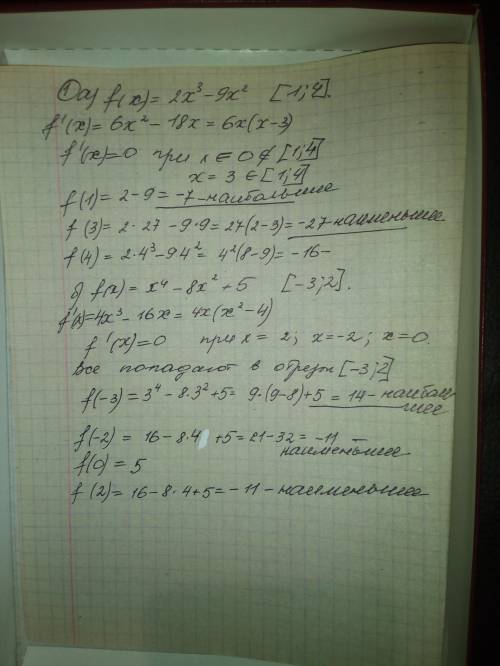 ① а) f(x) = 2x³ - 9x² [1;4].
f'(x) = 6x² - 18x = 6x(x-3)
f'(x)=0 при x ∈ 0 ∉ [1;4]
x = 3 ∈ [1;4]
f(1) = 2-9 = -7 - наибольшее
f(3) = 2·27 - 9·9 = 27(2-3) = -27 - наименьшее
f(4) = 2·4³ - 94² = 4²(8-9) = -16 -
б) f(x) = x⁴ - 8x² + 5 [-3;2].
f'(x) = 4x³ - 16x = 4x(x²-4)
f'(x)=0 при x = 2; x=-2; x=0.
Все попадают в отрезок [-3;2]
f(-3) = 3⁴ - 8·3² + 5 = 9·(9-8)+5 = 14 - наиболь
шее
f(-2) = 16 - 8·4 + 5 = 21 - 32 = -11 -
наименьшее
f(0) = 5
f(2) = 16 - 8·4 + 5 = -11 - наименьшее